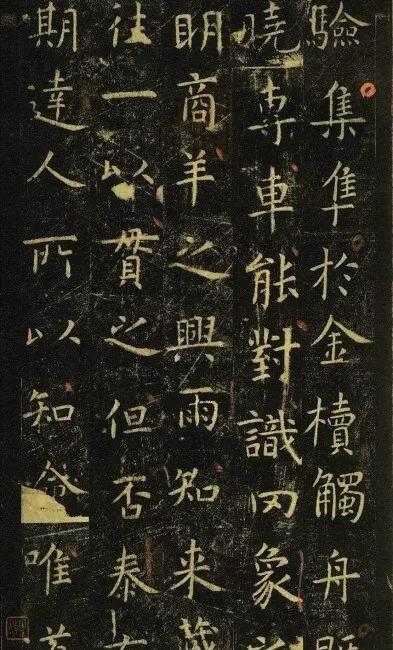 驗集隼於金櫝觸舟既
曉専車能對識罔象
眀商羊之興雨知来藏
往一以貫之但否泰有
期達人所以知命唯道